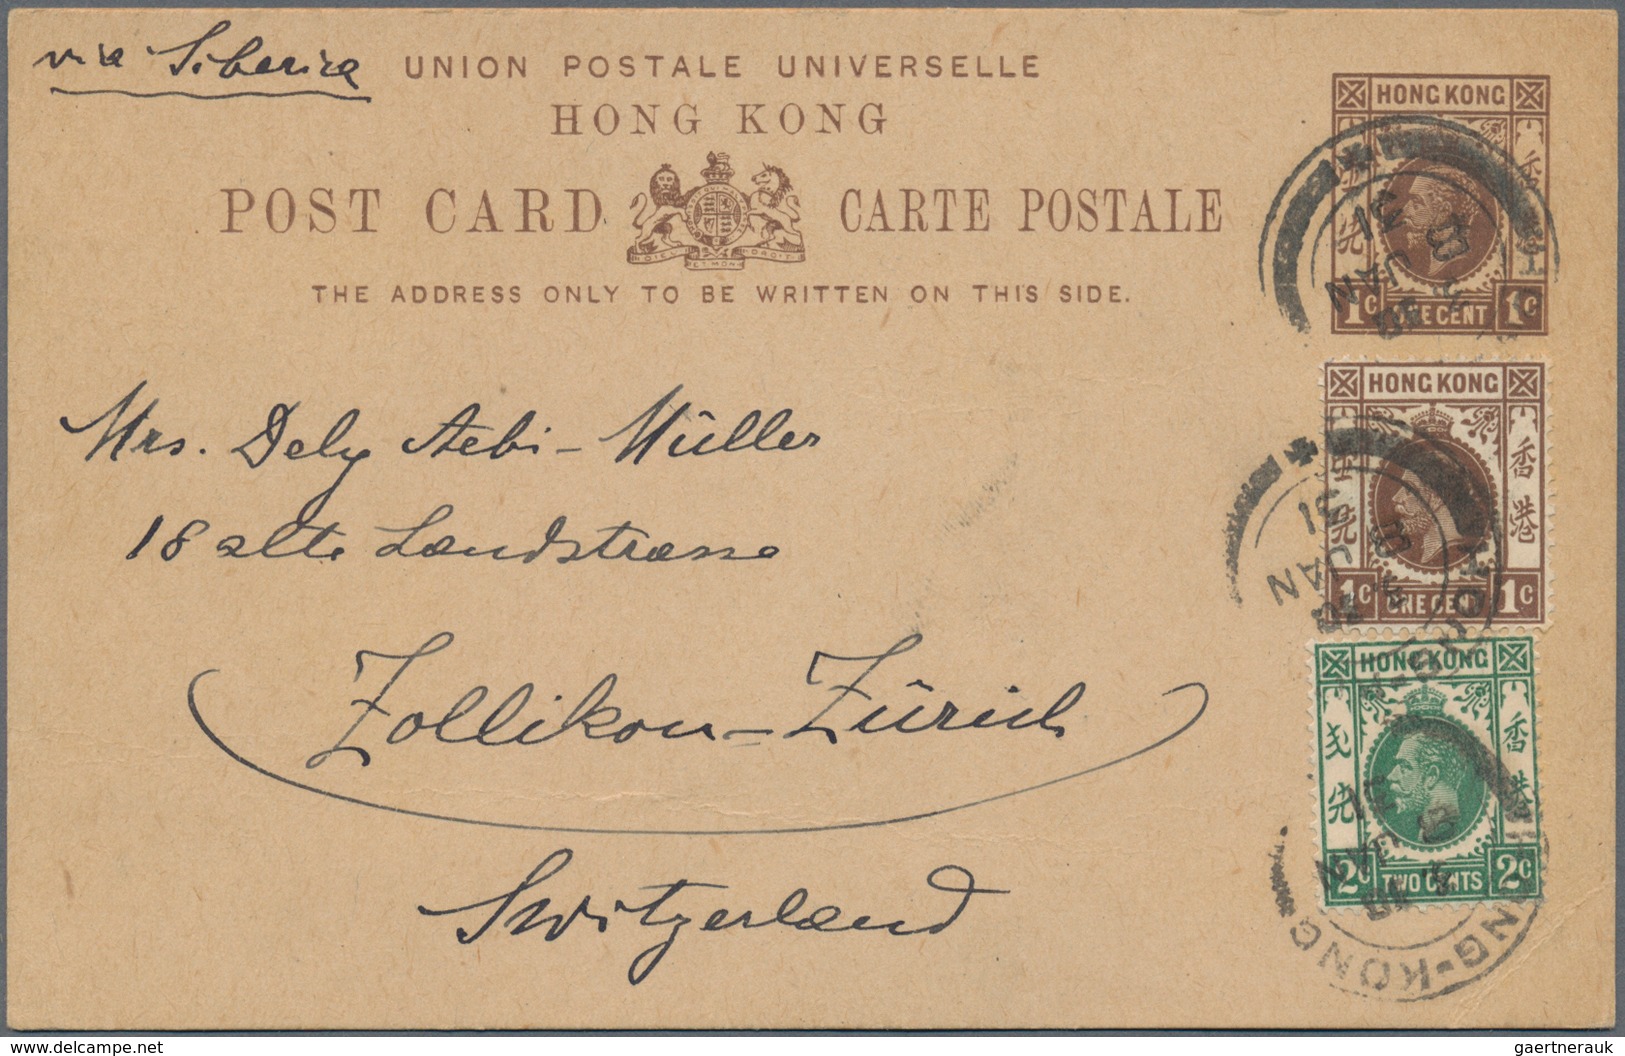 via Siberia
UNION POSTALE UNIVERSELLE
HONG KONG
POST CARD CARTE POSTALE
THE ADDRESS ONLY TO BE WRITTEN ON THIS SIDE.
HONG KONG
1C ONE CENT 1C
31
JAN
HONG KONG
香港
1C ONE CENT 1C
31
JAN
HONG KONG
香港
2C TWO CENTS 2C
31
JAN
HONG-KONG
Mrs. Dely Aebi-Müller
18 alte Landstrasse
Zollikon-Zürich
Switzerland
gaertnerauk